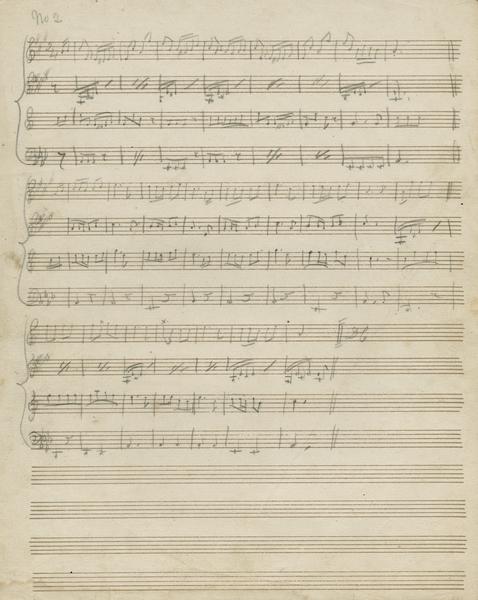 No 2